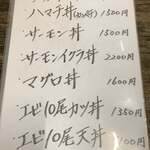 ・ハマチ丼(切り落し) 1500円
・サーモン丼 1500円
・サーモンイクラ丼 2200円
・マグロ丼 1600円
・エビ10尾カツ丼 1350円
・エビ10尾天丼 100円